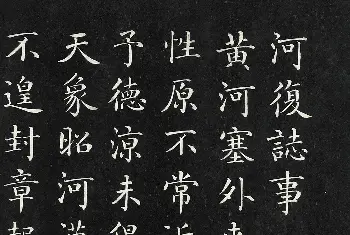 河復誌事
黃河塞外
性原不常
予德涼未
天象昭河
不遑封章